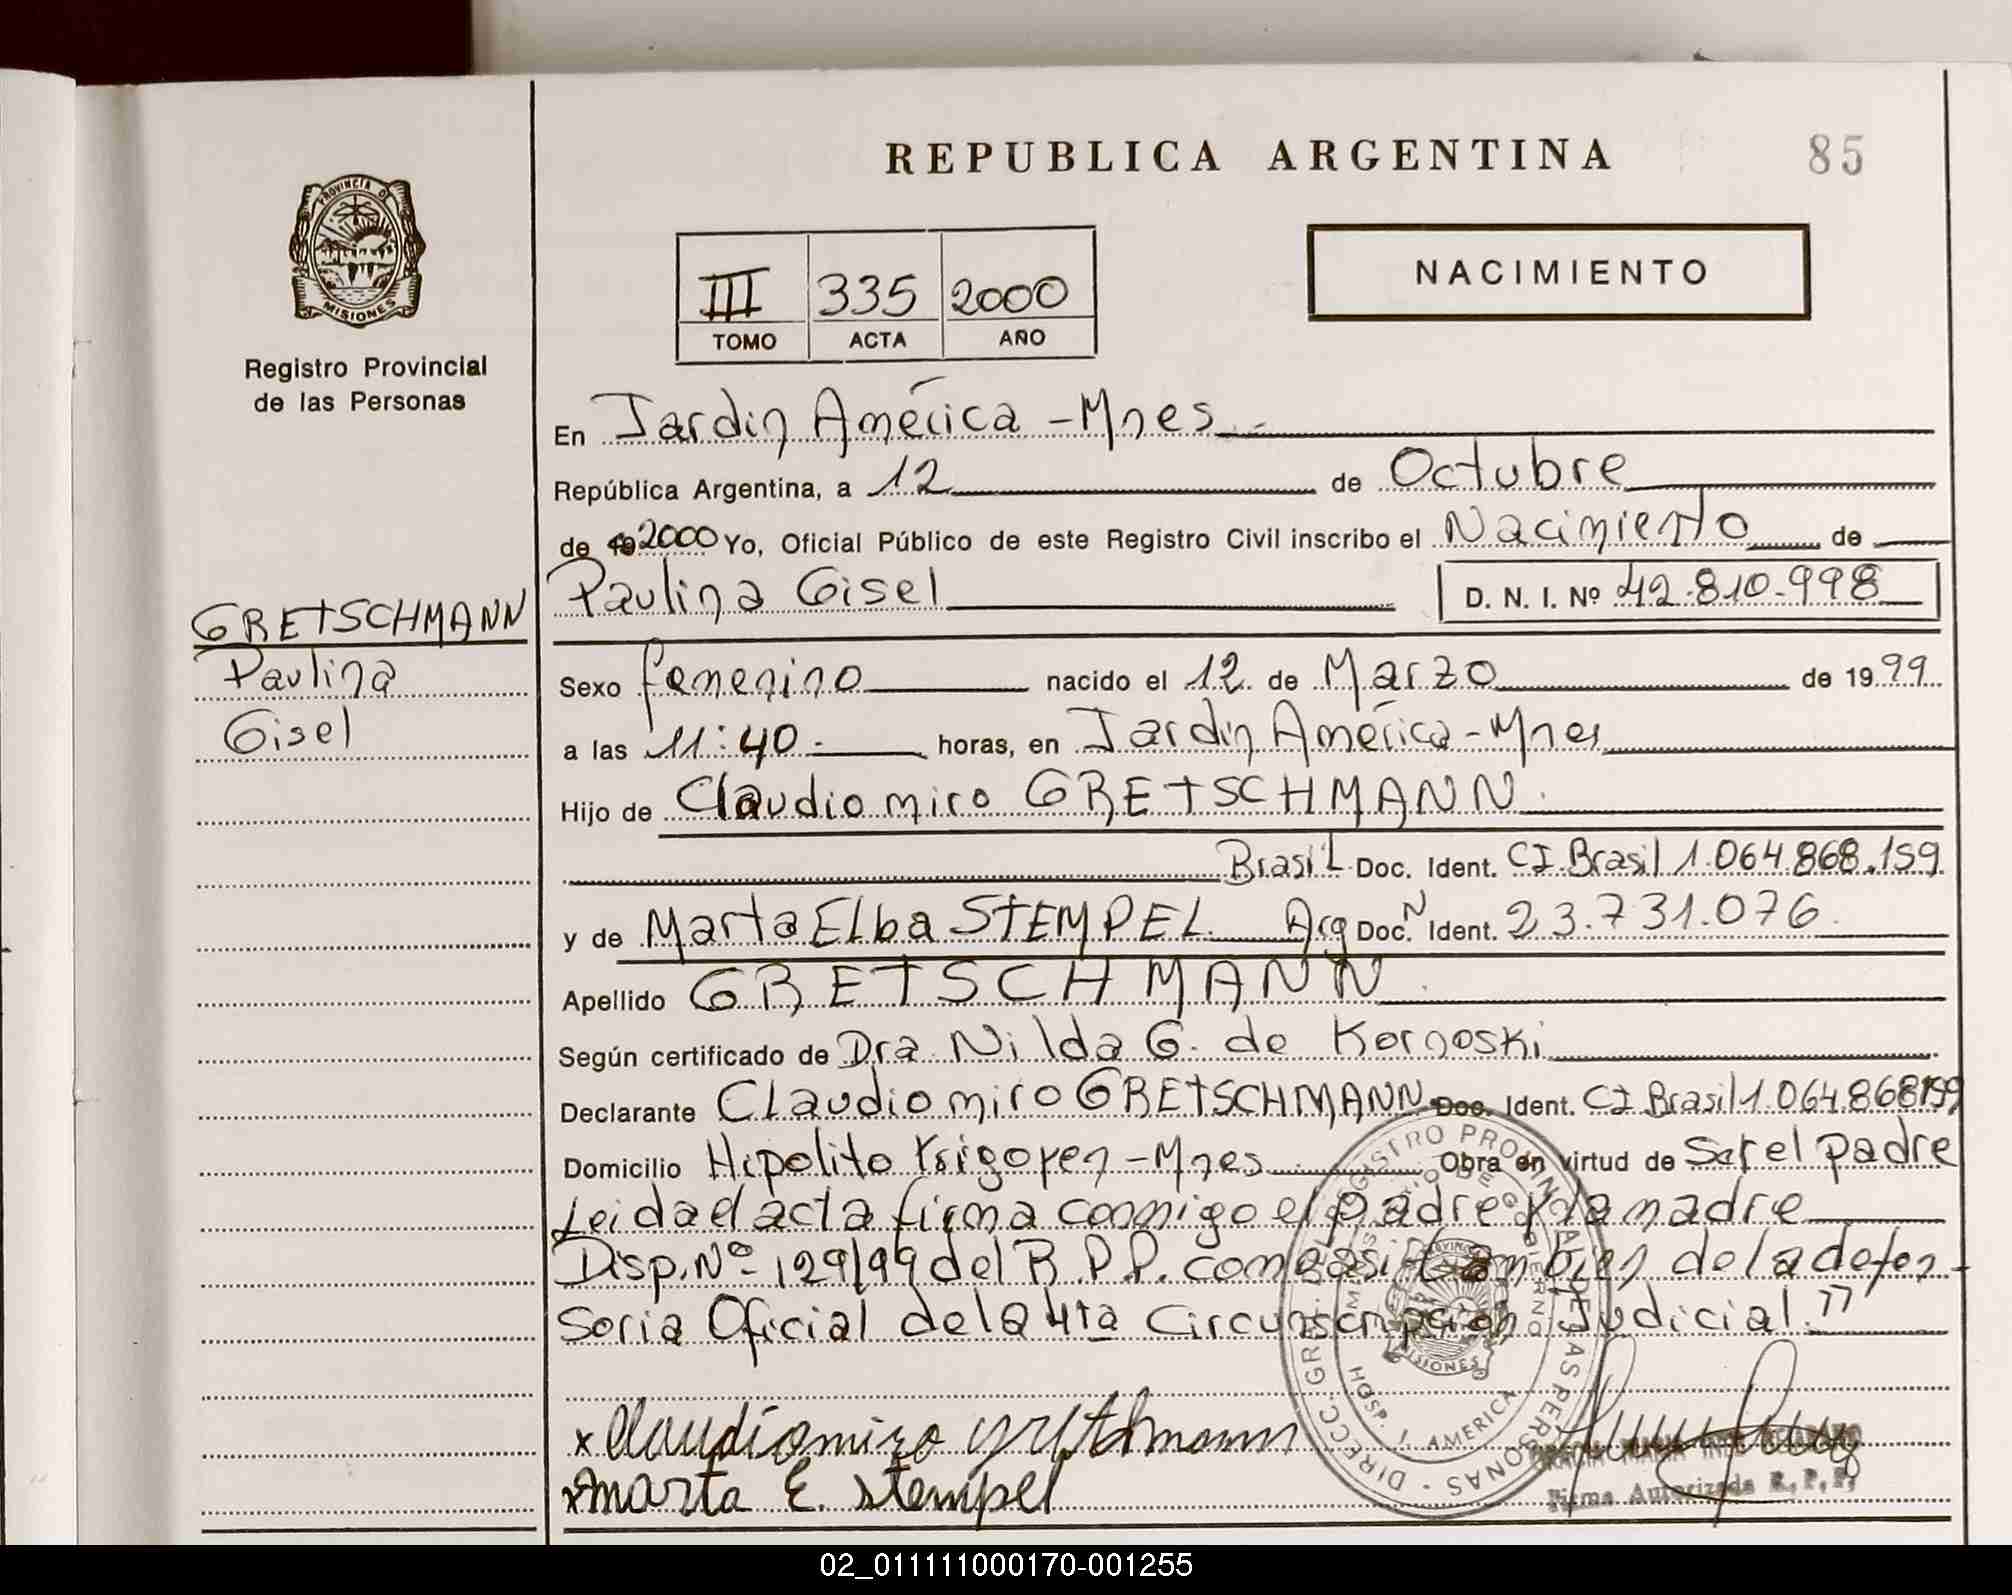 REPUBLICA ARGENTINA
85
PROVINCIA DE
MISIONES
Registro Provincial
de las Personas
III 335 2000
TOMO ACTA AÑO
NACIMIENTO
En Jardin América - Mnes.
República Argentina, a 12 de Octubre
de 19 2000 Yo, Oficial Público de este Registro Civil inscribo el Nacimiento de
Paulina Gisel D. N. I. Nº 42.810.998
GRETSCHMANN
Paulina
Gisel
Sexo femenino nacido el 12 de Marzo de 1999
a las 11:40 horas, en Jardin América - Mnes
Hijo de Claudiomiro GRETSCHMANN
Brasil Doc. Ident. CI. Brasil 1.064.868.159
y de Marta Elba STEMPEL Arg Doc. N Ident. 23.731.076.
Apellido GRETSCHMANN
Según certificado de Dra Nilda G. de Kornoski
Declarante Claudiomiro GRETSCHMANN Doc. Ident. CI Brasil 1.064.868159
Domicilio Hipolito Yrigoyen - Mnes Obra en virtud de Ser el padre
Leida el acta firma conmigo el padre y la madre
Disp. Nº 129/99 del R.P.P. como asi tambien de la defen-
soria Oficial de la 4ta Circunscripción Judicial."
x Claudiomiro Gretschmann
x Marta E. Stempel
DIRECC. GRAL. DEL REGISTRO PROVINCIAL DE LAS PERSONAS
MINISTERIO DE GOBIERNO
HOSP. J. AMERICA
MISIONES
Firma Autorizada R. P. P.
02_011111000170-001255